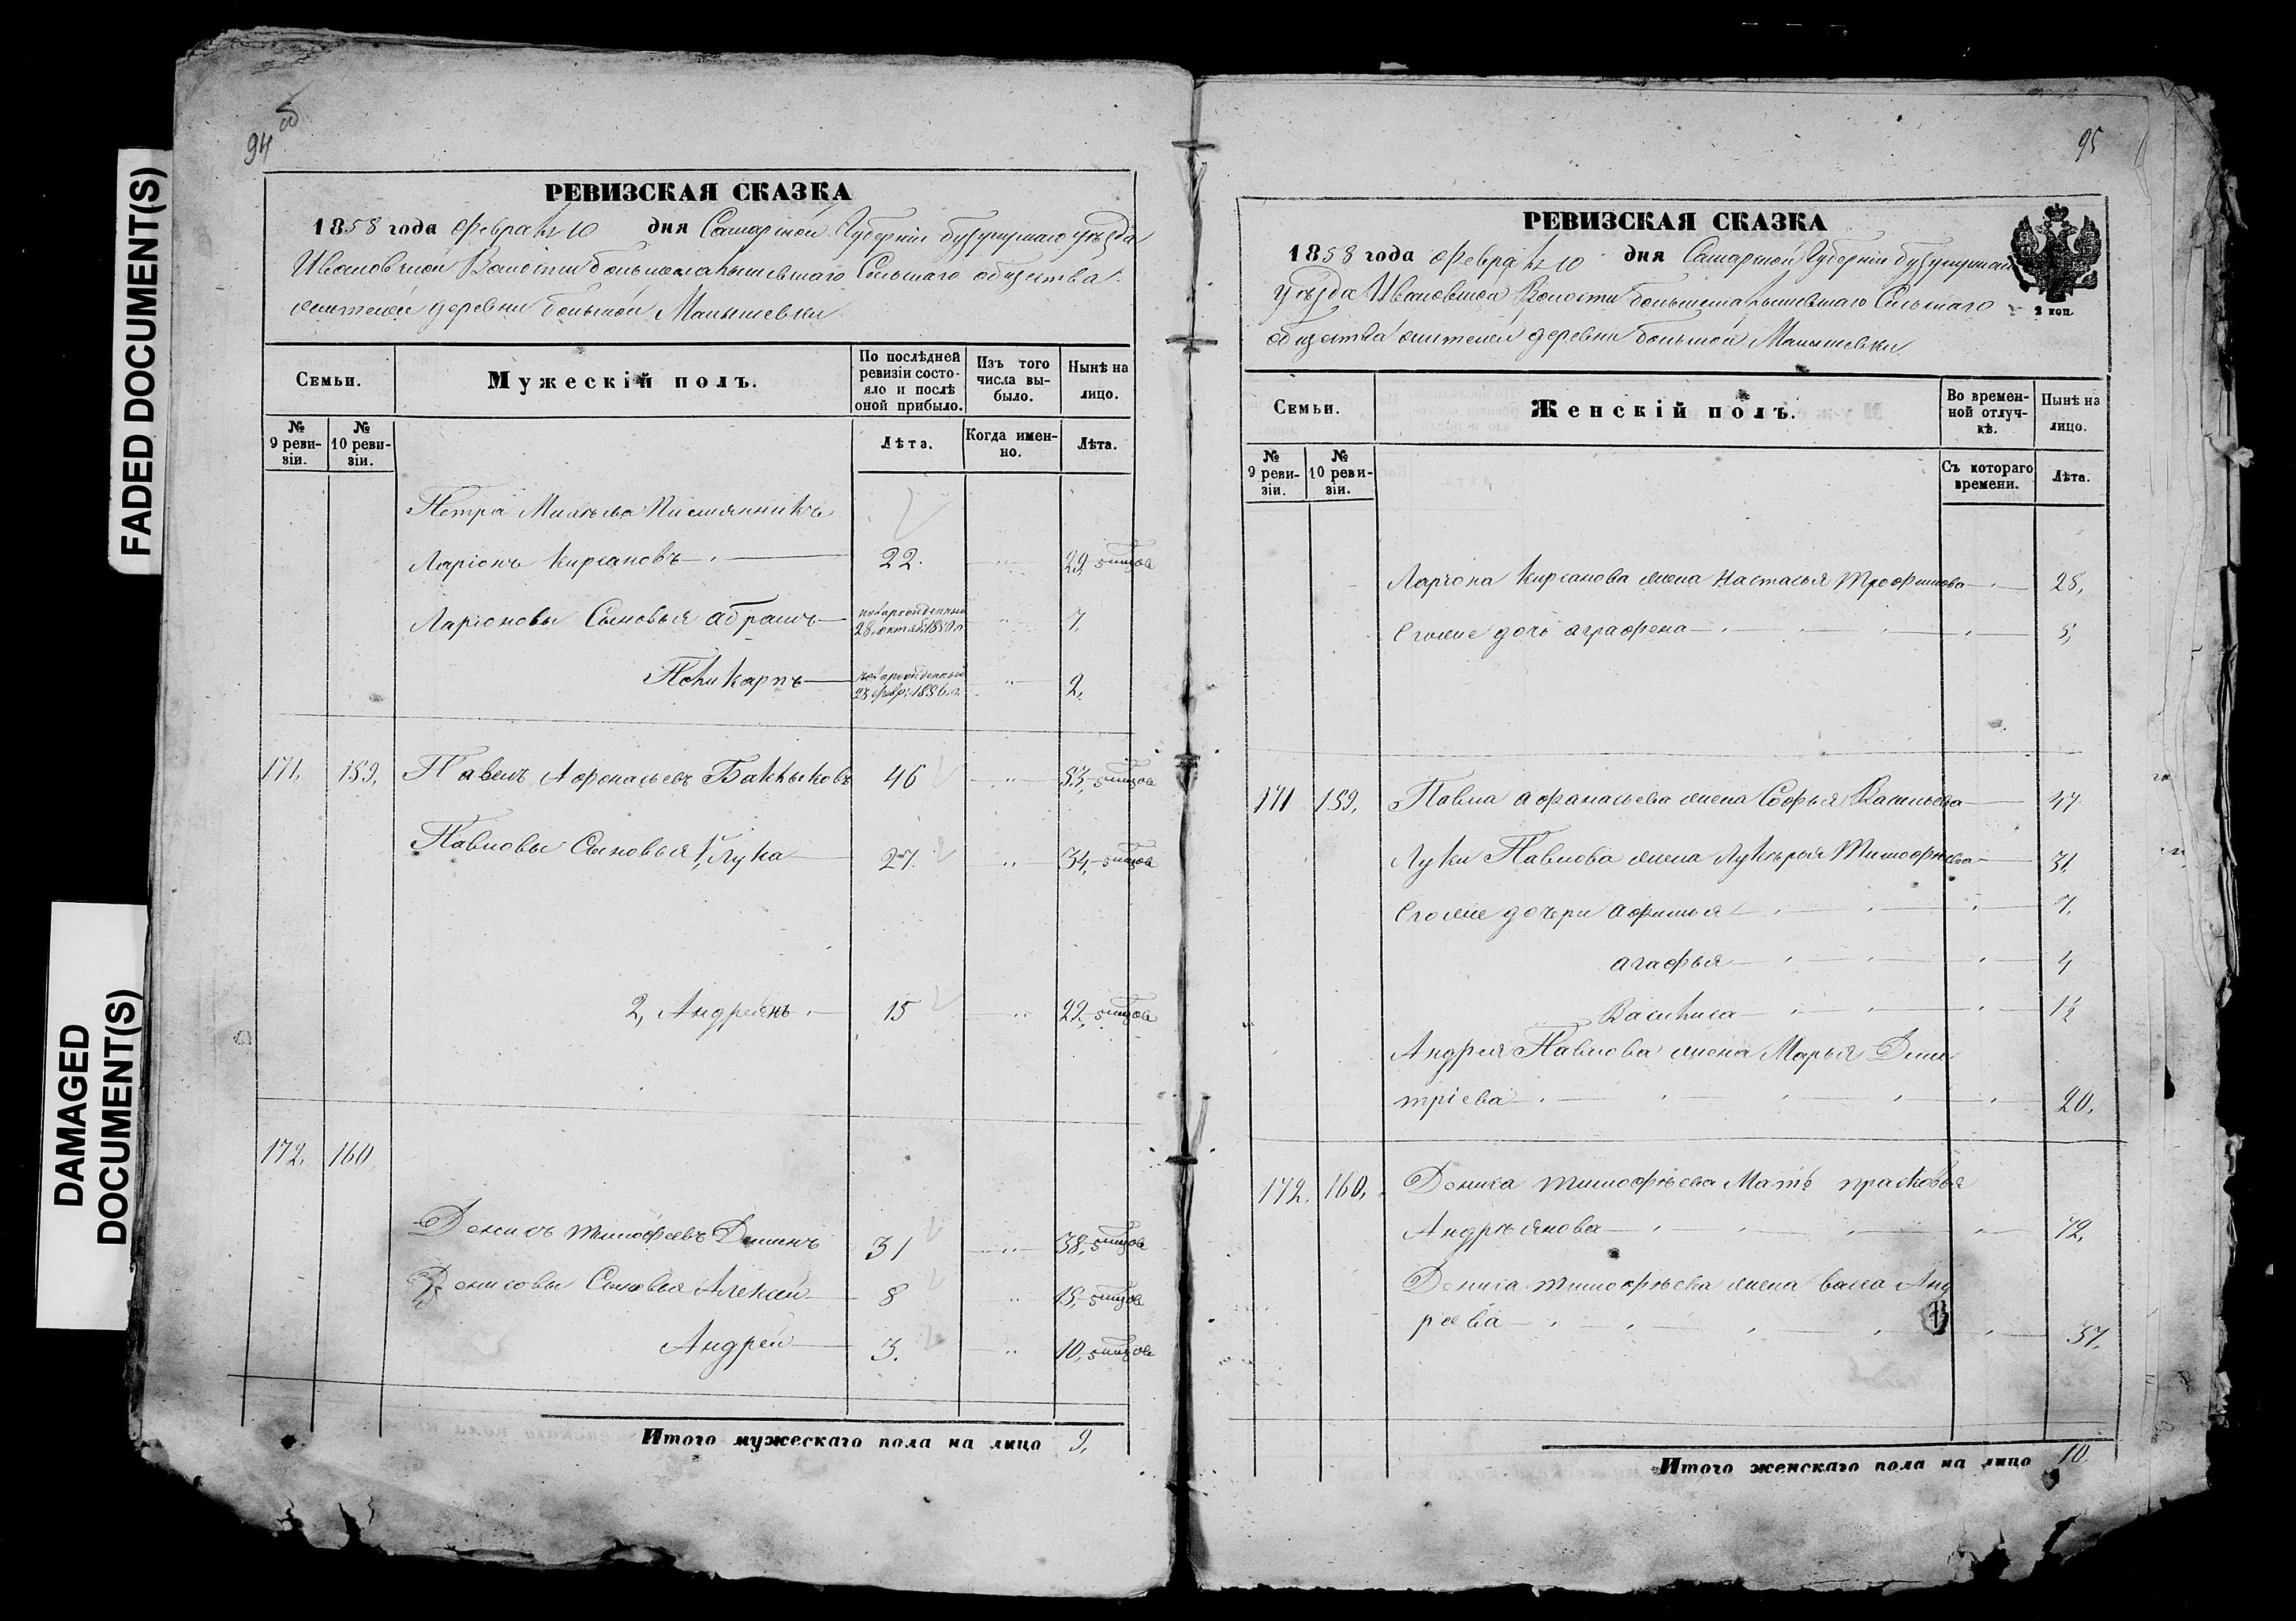 FADED DOCUMENT(S)
DAMAGED
DOCUMENT(S)
94 об
РЕВИЗСКАЯ СКАЗКА
1858 года Февраля 10 дня Самарской Губернии бузулукскаго уѣзда
Ивановской Волости большемалышевскаго Сельскаго общества
жителей деревни большой Малышевки
Семьи.
Мужескій полъ.
По послѣдней
ревизіи состо-
яло и послѣ
оной прибыло.
Изъ того
числа вы-
было.
Нынѣ на
лицо.
№
9 реви-
зіи.
№
10 реви-
зіи.
Лѣта.
Когда имен-
но.
Лѣта.
Петра Михѣева племянникъ
Ларіонъ Кирсановъ 22. " 29,
Ларіоновы Сыновья абрамъ новорожденный 28 октяб. 1850 г. " 7,
Поликарпъ новорожденный 23 февр. 1856 г. " 2,
171, 159, Павелъ Афонасьевъ 46 " 53,
Павловы Сыновья 1, Лука 27. " 34,
2, Андреянъ 15 " 22,
172, 160
Денисъ тимофеевъ 31 " 38,
Денисовы Сыновья Алексей 8 " 15,
Андрей 3. " 10,
Итого мужескаго пола на лицо 9,
95
РЕВИЗСКАЯ СКАЗКА
1858 года Февраля 10 дня Самарской Губернии бузулукскаго
уѣзда Ивановской Волости большемалышевскаго Сельскаго
общества жителей деревни большой Малышевки
2 коп.
Семьи.
Женскій полъ.
Во времен-
ной отлуч-
кѣ.
Нынѣ на
лицо.
№
9 реви-
зіи.
№
10 реви-
зіи.
Съ котораго
времени.
Лѣта.
Ларіона Кирсанова жена Настасья Трофимова 28,
Егоже дочь аграфена 5,
171 159, Павла афанасьева жена Софья Васильева 47
Луки Павлова жена Лукѣрья Тимофѣева 31
Егоже дочери афимья 7,
агафья 4
Василиса 1½
Андрея Павлова жена Марья Дми
тріева 20,
172. 160, Дениса тимофѣева Мать прасковья
Андрѣянова 72,
Дениса тимофѣева жена васса Анд
реева 37,
Итого женскаго пола на лицо 10